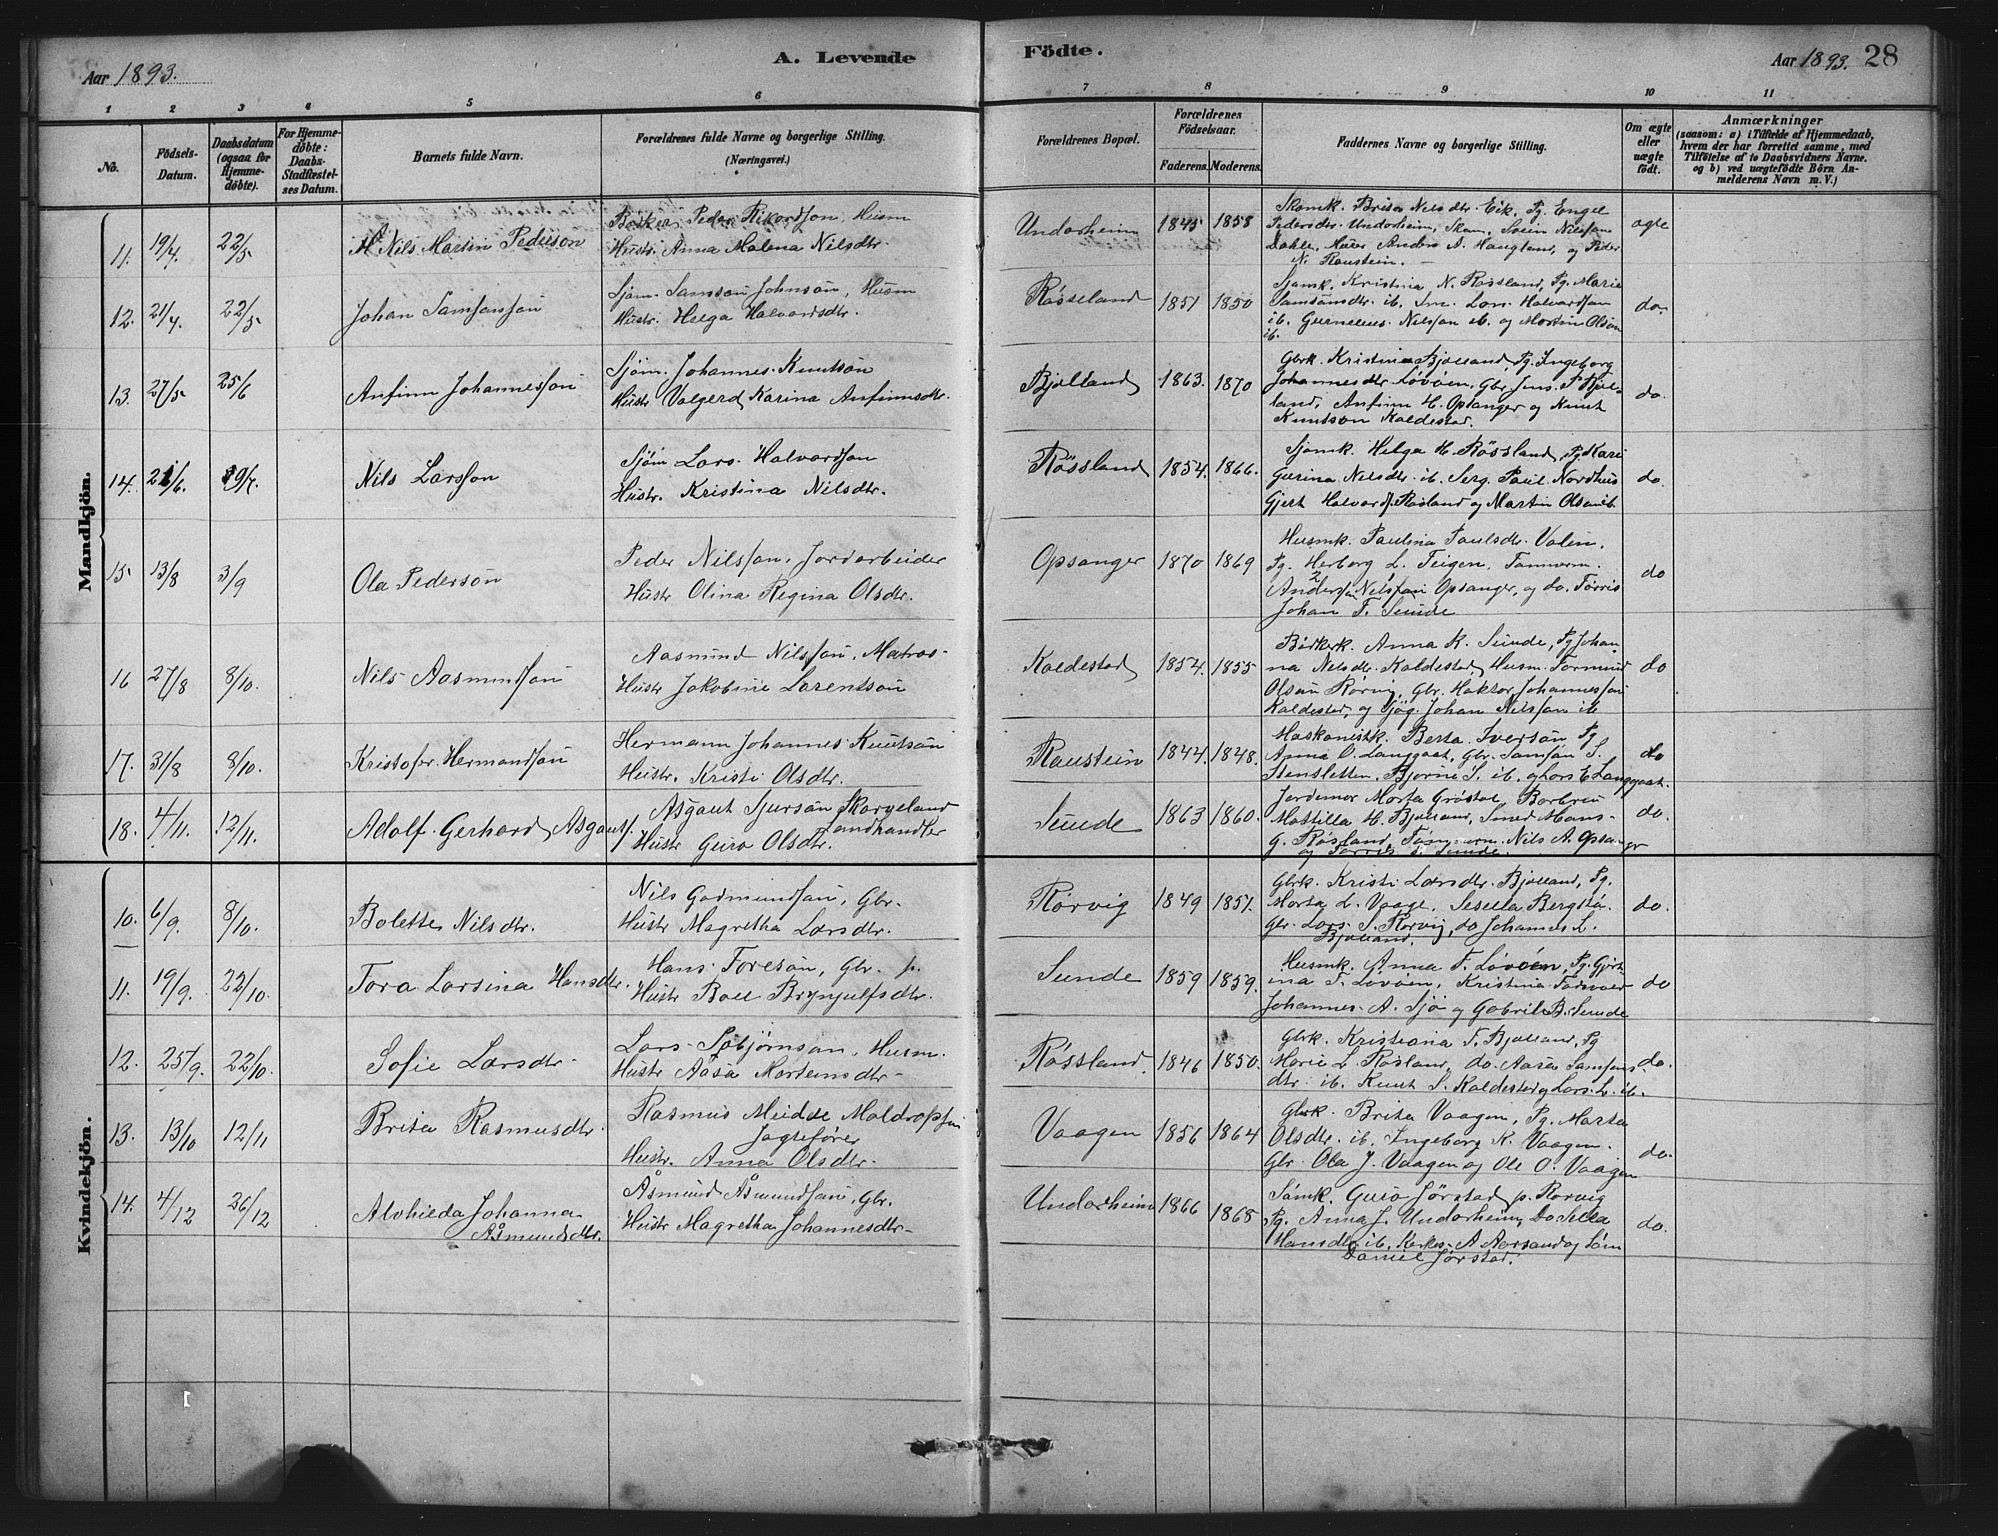 Aar 1893.
A. Levende
Födte.
Aar 1893. 28
1 2 3 4 5 6 7 8 9 10 11
No.
Födsels-
Datum.
Daabsdatum
(ogsaa for
Hjemme-
döbte).
For Hjemme-
døbte:
Daabs-
Stadfæstel-
ses Datum.
Barnets fulde Navn.
Forældrenes fulde Navne og borgerlige Stilling.
(Næringsvei.)
Forældrenes Bopæl.
Forældrenes
Födselsaar.
Faderens. Moderens.
Faddernes Navne og borgerlige Stilling.
Om ægte
eller
uægte
födt.
Anmærkninger
(saasom: a) i Tilfælde af Hjemmedaab,
hvem der har forrettet samme, med
Tilföielse af to Daabsvidners Navne.
og b) ved uægtefödte Börn An-
melderens Navn m. V.)
Mandkjön.
11. 19/4. 22/5. Nils Martin Pederson
Peder Rikordson, Husm
Hustr. Anna Malena Nilsdtr.
Undarheim 1845 1858
Brita Nilsdtr Eik, Pg. Engel
Pedersdtr Undarheim, Skom. Svein Nilsson
Dahle, Anders A. Haugland, og Peder
N. Raustein.
ægte
12. 21/4. 22/5 Johan Samsonson
Sjøm. Samson Johnson, Husm
Hustr. Helga Halvardsdtr.
Røsseland 1851 1850
Sjømk. Kristina N. Røssland, Pg. Maria
Samsonsdtr ib. Sm. Lars Halvardson
ib. Nilsson ib. og Martin Olson
ib.
do.
13. 27/5 25/6 Anfinn Johannesson
Sjøm. Johannes Knutson
Hustr Valgerd Karina Anfinnsdtr.
Bjølland 1863. 1870
Gbrk. Kristina Bjølland, Pg. Ingeborg
Johannesdtr Løvøen, Gbr Jens
land, Anfinn H. Opsanger og Knut
Knutson Kaldestad.
do.
14. 21/6. 9/7. Nils Larsson
Sjøm Lars Halvardson
Hustr. Kristina Nilsdtr.
Røssland 1854. 1866.
Sjømk. Helga H. Røssland, Pg. Kari
Gurina Nilsdtr. ib. Serg. Paul Nordhus
Gjert Halvards. Røsland og Martin Olson ib.
do.
15 13/8 3/9 Ola Pederson
Peder Nilsson, Jordarbeider
Hustr Olina Regina Olsdtr.
Opsanger 1870 1869
Husmk. Paulina Paulsdtr. Valen.
Pg. Herborg L. Teigen, Tømmerm.
Anders Nilsson Opsanger, og do. Tørris
Johan T. Sunde
do
16 27/8 8/10. Nils Aasmundson
Aasmund Nilsson, Matros
Hustr Jakobine Larentson
Kaldestad 1854. 1855
Bødkerk. Anna K. Sunde, Pg Johan
na Nilsdtr. Kaldestad Husm Tormund
Olson Rørvig, Gbr. Haktor Johannesson
Kaldestad, og Sjøg. Johan Nilsson ib
do
17. 31/8 8/10. Kristofer Hermandson
Hermann Johannes Knutson
Hustr. Kristi Olsdtr.
Raustein 1844. 1848.
Maskonistk. Berta Iverson Pg
Anna O. Langgaat, Gbr. Samson S.
Stensletten, Bjørne S. ib. og Lars E Langgaat.
do
18. 4/11. 12/11. Adolf Gerhard Asgauts.
Asgaut Sjurson Skorpeland
Landhandler
Hustr Guro Olsdtr.
Sunde 1863 1860.
Jordemor Marta Grøstøl,
Mattilla H. Bjølland, Smed Hans
G. Røsland, Nils A. Opsanger
og Tørris T. Sunde.
do.
Kvindekjön.
10. 6/9. 8/10. Bolette Nilsdtr.
Nils Godmundson, Gbr.
Hustr Magretha Larsdtr.
Rørvig 1849 1857.
Gbrk. Kristi Larsdtr. Bjølland, Pg.
Marta L. Vaage,
Gbr. Lars S. Rørvig, do Johannes L.
Bjølland.
do.
11. 19/9. 22/10. Tora Larsina Hansdtr.
Hans Toreson, Gbr. p.
Hustr Boel Brynjulfsdtr.
Sunde 1859 1859.
Husmk. Anna T. Løvøen, Pg. Gjert
ina T. Løvøen, Kristina
Johannes A. Sjø og Gabriel B. Sunde
do
12. 25/9. 22/10. Sofie Larsdtr
Lars Husm.
Hustr Aasa Mortensdtr
Røssland. 1846 1850.
Gbrk. Kristiana T. Bjølland, Pg
Marie L. Røsland, do Aasa Samsons
dtr. ib. Knut S. Kaldestad og Lars L. ib.
do.
13. 13/10 12/11 Brita Rasmusdtr.
Rasmus
Jagtefører
Hustr. Anna Olsdtr.
Vaagen 1856 1864
Gbrk. Brita Vaagen, Pg. Marta
Olsdtr. ib. Ingeborg K. Vaagen.
Gbr. Ola J. Vaagen og Ole O. Vaagen
do.
14. 4/12 26/12 Alvhilda Johanna
Åsmundsdtr.
Åsmund Åsmundson, Gbr.
Hustr Magretha Johannesdtr
Undarheim 1866 1868
Guro Jørstad p. Rørvig
Pg. Anna J. Undarheim, Do
Hansdtr ib, A Aarsand og
Daniel Jørstad.
do.